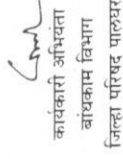 कार्यकारी अभियंता
बांधकाम विभाग
जिल्हा परिषद पालघर